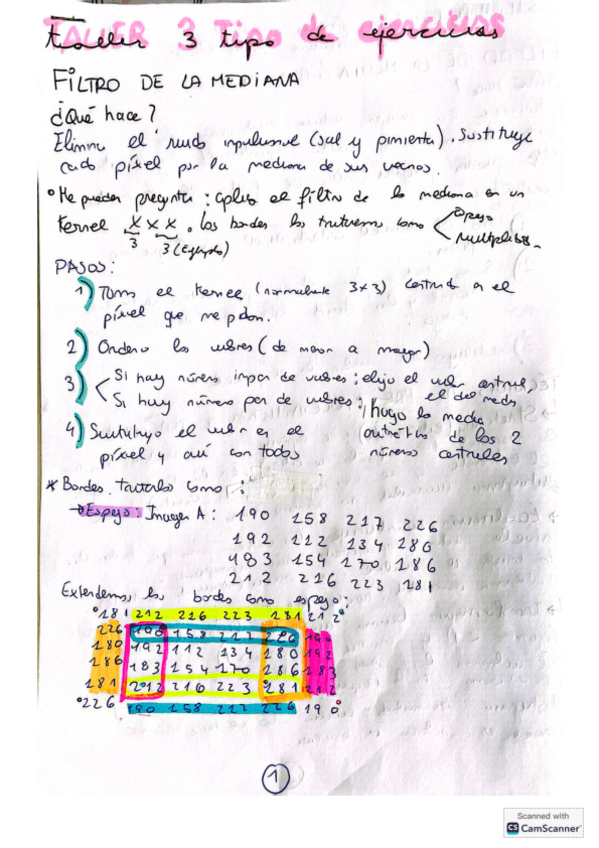 TALLER 3 tipo de ejercicios
FILTRO DE LA MEDIANA
¿Qué hace?
Elimina el ruido impulsional (sal y pimienta). Sustituye
cada píxel por la mediana de sus vecinos.
° Me pueden preguntar: aplico el filtro de la mediana en un
Kernel x x x. Los bordes los trataremos como < Espejo
3 3 (Ejemplo) Multiplicidad
PASOS:
1) Tomo el Kernel (normalmente 3x3) centrado en el
píxel que me piden.
2) Ordeno los valores (de menor a mayor)
3) < Si hay número impar de valores: elijo el valor central,
el del medio
Si hay número par de valores: hago la media
aritmética de los 2
números centrales
4) Sustituyo el valor en el
píxel y así con todos
* Bordes tratarlos como :
→ Espejo: Imagen A: 190 158 217 226
192 112 134 180
183 154 170 186
212 216 223 181
Extendemos los bordes como espejo:
°181 212 216 223 281 212°
226 190 158 217 226 190
180 192 112 134 180 192
186 183 154 170 186 183
181 212 216 223 181 212
°226 190 158 217 226 190°
1
Scanned with
CS CamScanner